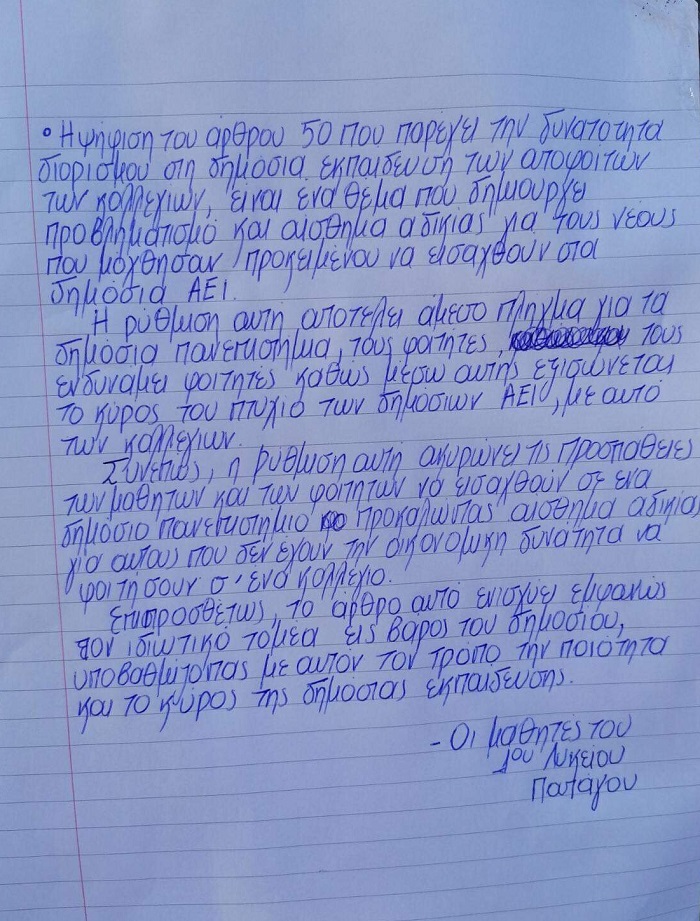 ° Η ψήφιση του άρθρου 50 που παρέχει την δυνατότητα
διορισμου στη δημόσια εκπαίδευση των αποφοίτων
των κολλεγίων, είναι ένα θέμα που δημιουργεί
προβληματισμό και αίσθημα αδικίας για τους νέους
που μόχθησαν προκειμένου να εισαχθούν στα
δημόσια ΑΕΙ.
Η ρύθμιση αυτή αποτελεί άμεσο πλήγμα για τα
δημόσια πανεπιστήμια, τους φοιτητές, τους
εν δυνάμει φοιτητές καθώς μέσω αυτής εξισώνεται
το κύρος του πτυχίο των δημόσιων ΑΕΙ, με αυτό
των κολλεγίων.
Συνεπώς, η ρύθμιση αυτή ακυρώνει τις προσπάθειες
των μαθητών και των φοιτητών να εισαχθούν σε ένα
δημόσιο πανεπιστήμιο προκαλώντας αίσθημα αδικίας
για αυτούς που δεν έχουν την οικονομική δυνάτητα να
φοιτήσουν σ' ένα κολλέγιο.
Επιπροσθέτως, το άρθρο αυτό ενισχύει εμφανώς
τον ιδιωτικό τομέα εις βάρος του δημοσίου,
υποβαθμίζοντας με αυτόν τον τρόπο την ποιότητα
και το κύρος της δημόσιας εκπαίδευσης.
- Οι μαθητές του
1ου Λυκείου
Παπάγου